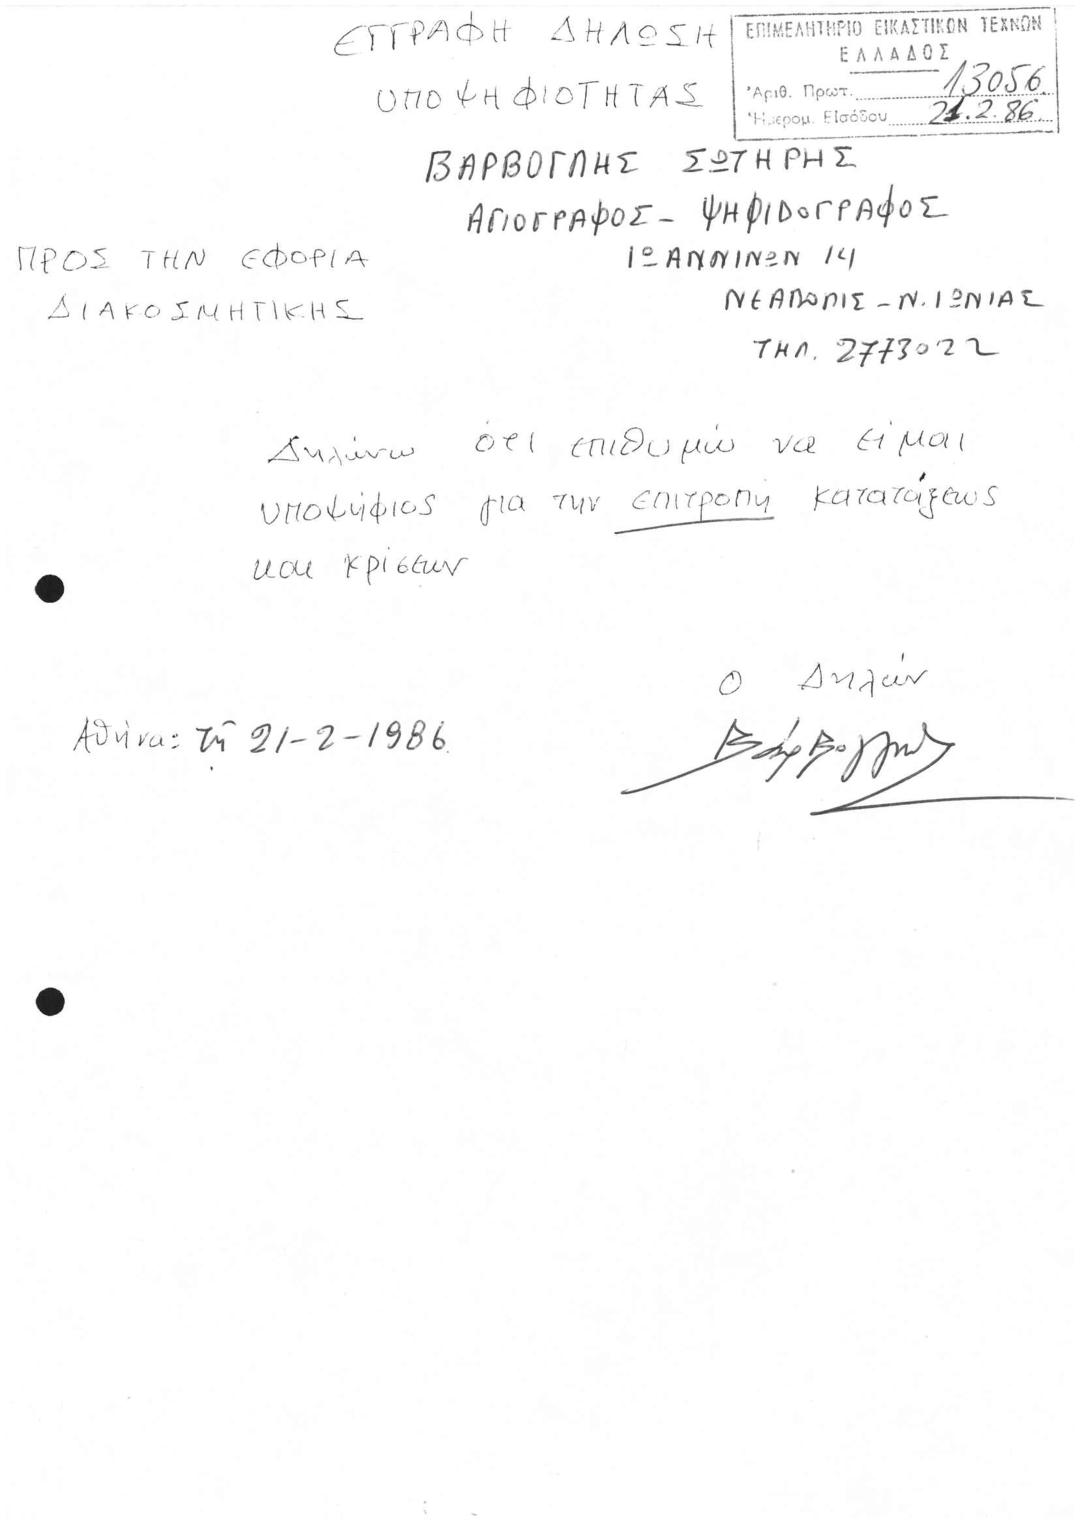 ΕΓΓΡΑΦΗ ΔΗΛΩΣΗ
ΥΠΟΨΗΦΙΟΤΗΤΑΣ
ΕΠΙΜΕΛΗΤΗΡΙΟ ΕΙΚΑΣΤΙΚΩΝ ΤΕΧΝΩΝ
ΕΛΛΑΔΟΣ
Ἀριθ. Πρωτ. 13056
Ἡμερομ. Εἰσόδου 21.2.86.
ΒΑΡΒΟΓΛΗΣ ΣΩΤΗΡΗΣ
ΑΓΙΟΓΡΑΦΟΣ - ΨΗΦΙΔΟΓΡΑΦΟΣ
ΙΩΑΝΝΙΝΩΝ 14
ΝΕΑΠΟΛΙΣ - Ν. ΙΩΝΙΑΣ
ΤΗΛ. 2773022
ΠΡΟΣ ΤΗΝ ΕΦΟΡΙΑ
ΔΙΑΚΟΣΜΗΤΙΚΗΣ
Δηλώνω ότι επιθυμώ να είμαι
υποψήφιος για την επιτροπή κατατάξεως
και κρίσεων
Ο Δηλών
Βάρβογλης
Αθήνα: τῇ 21-2-1986